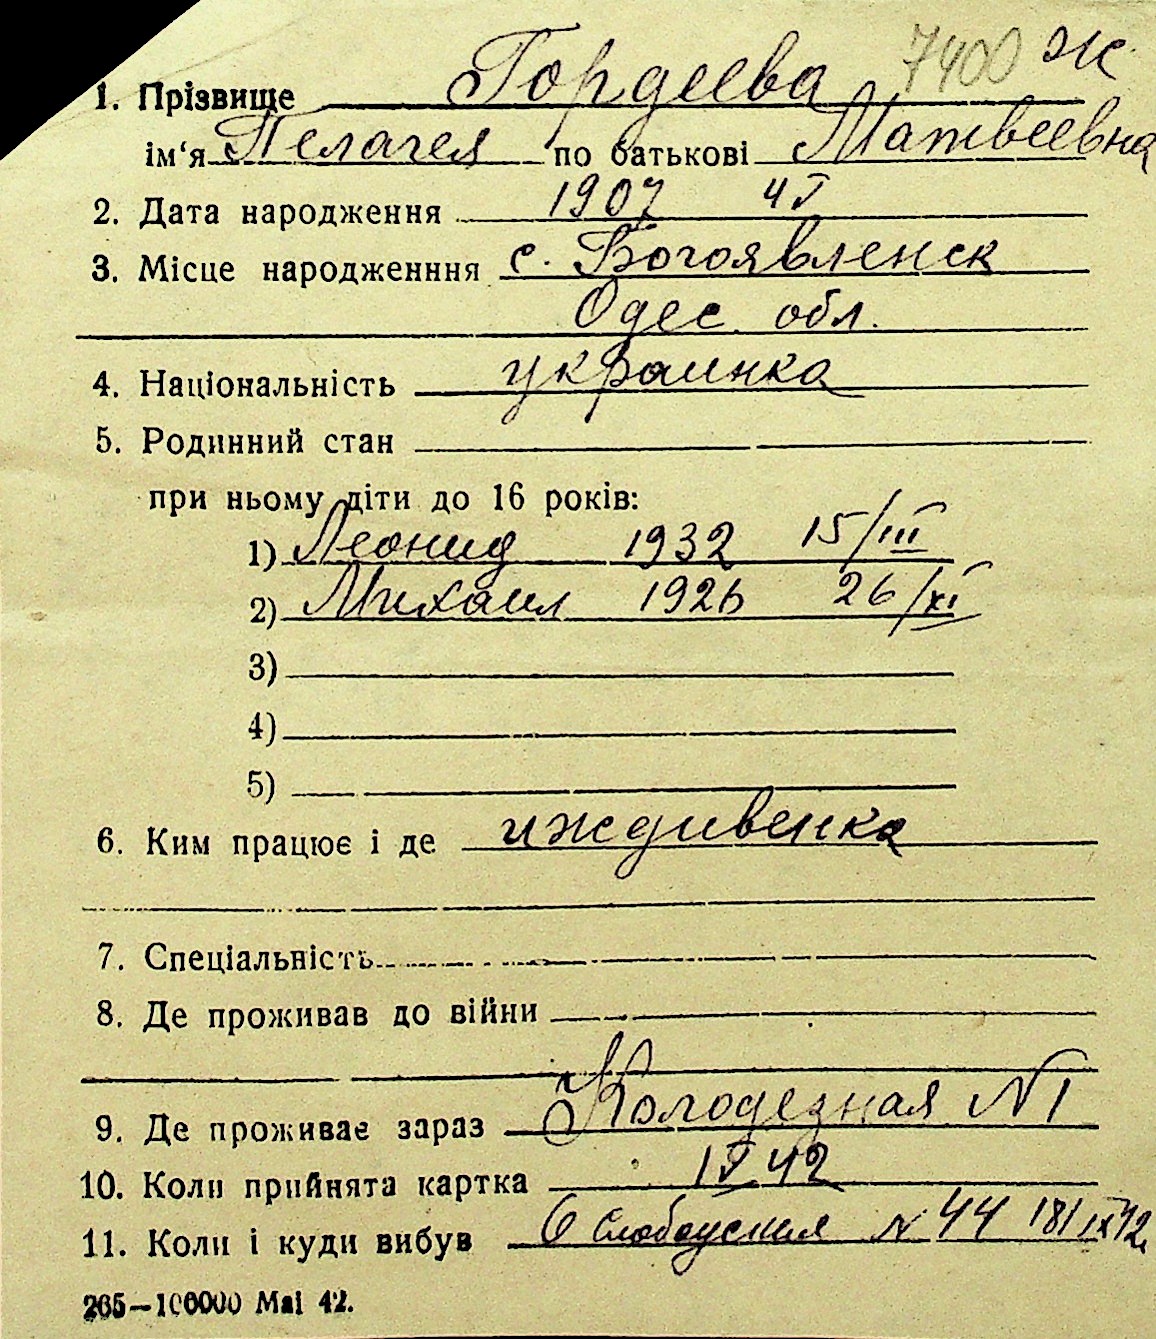 7400 Ж
1. Прізвище Гордеева
ім‘я Пелагея по батькові Матвеевна
2. Дата народження 1907 4 I
3. Місце народженння с. Богоявленск
Одес. обл.
4. Національність украинка
5. Родинний стан
при ньому діти до 16 років:
1) Леонид 1932 15/III
2) Михаил 1926 26/XI
3)
4)
5)
6. Ким працює і де иждивенка
7. Спеціальність
8. Де проживав до війни
9. Де проживає зараз Колодезная № 1
10. Коли прийнята картка
11. Коли і куди вибув 6 Слободская № 44 18/IX 42
265—100000 Mai 42.